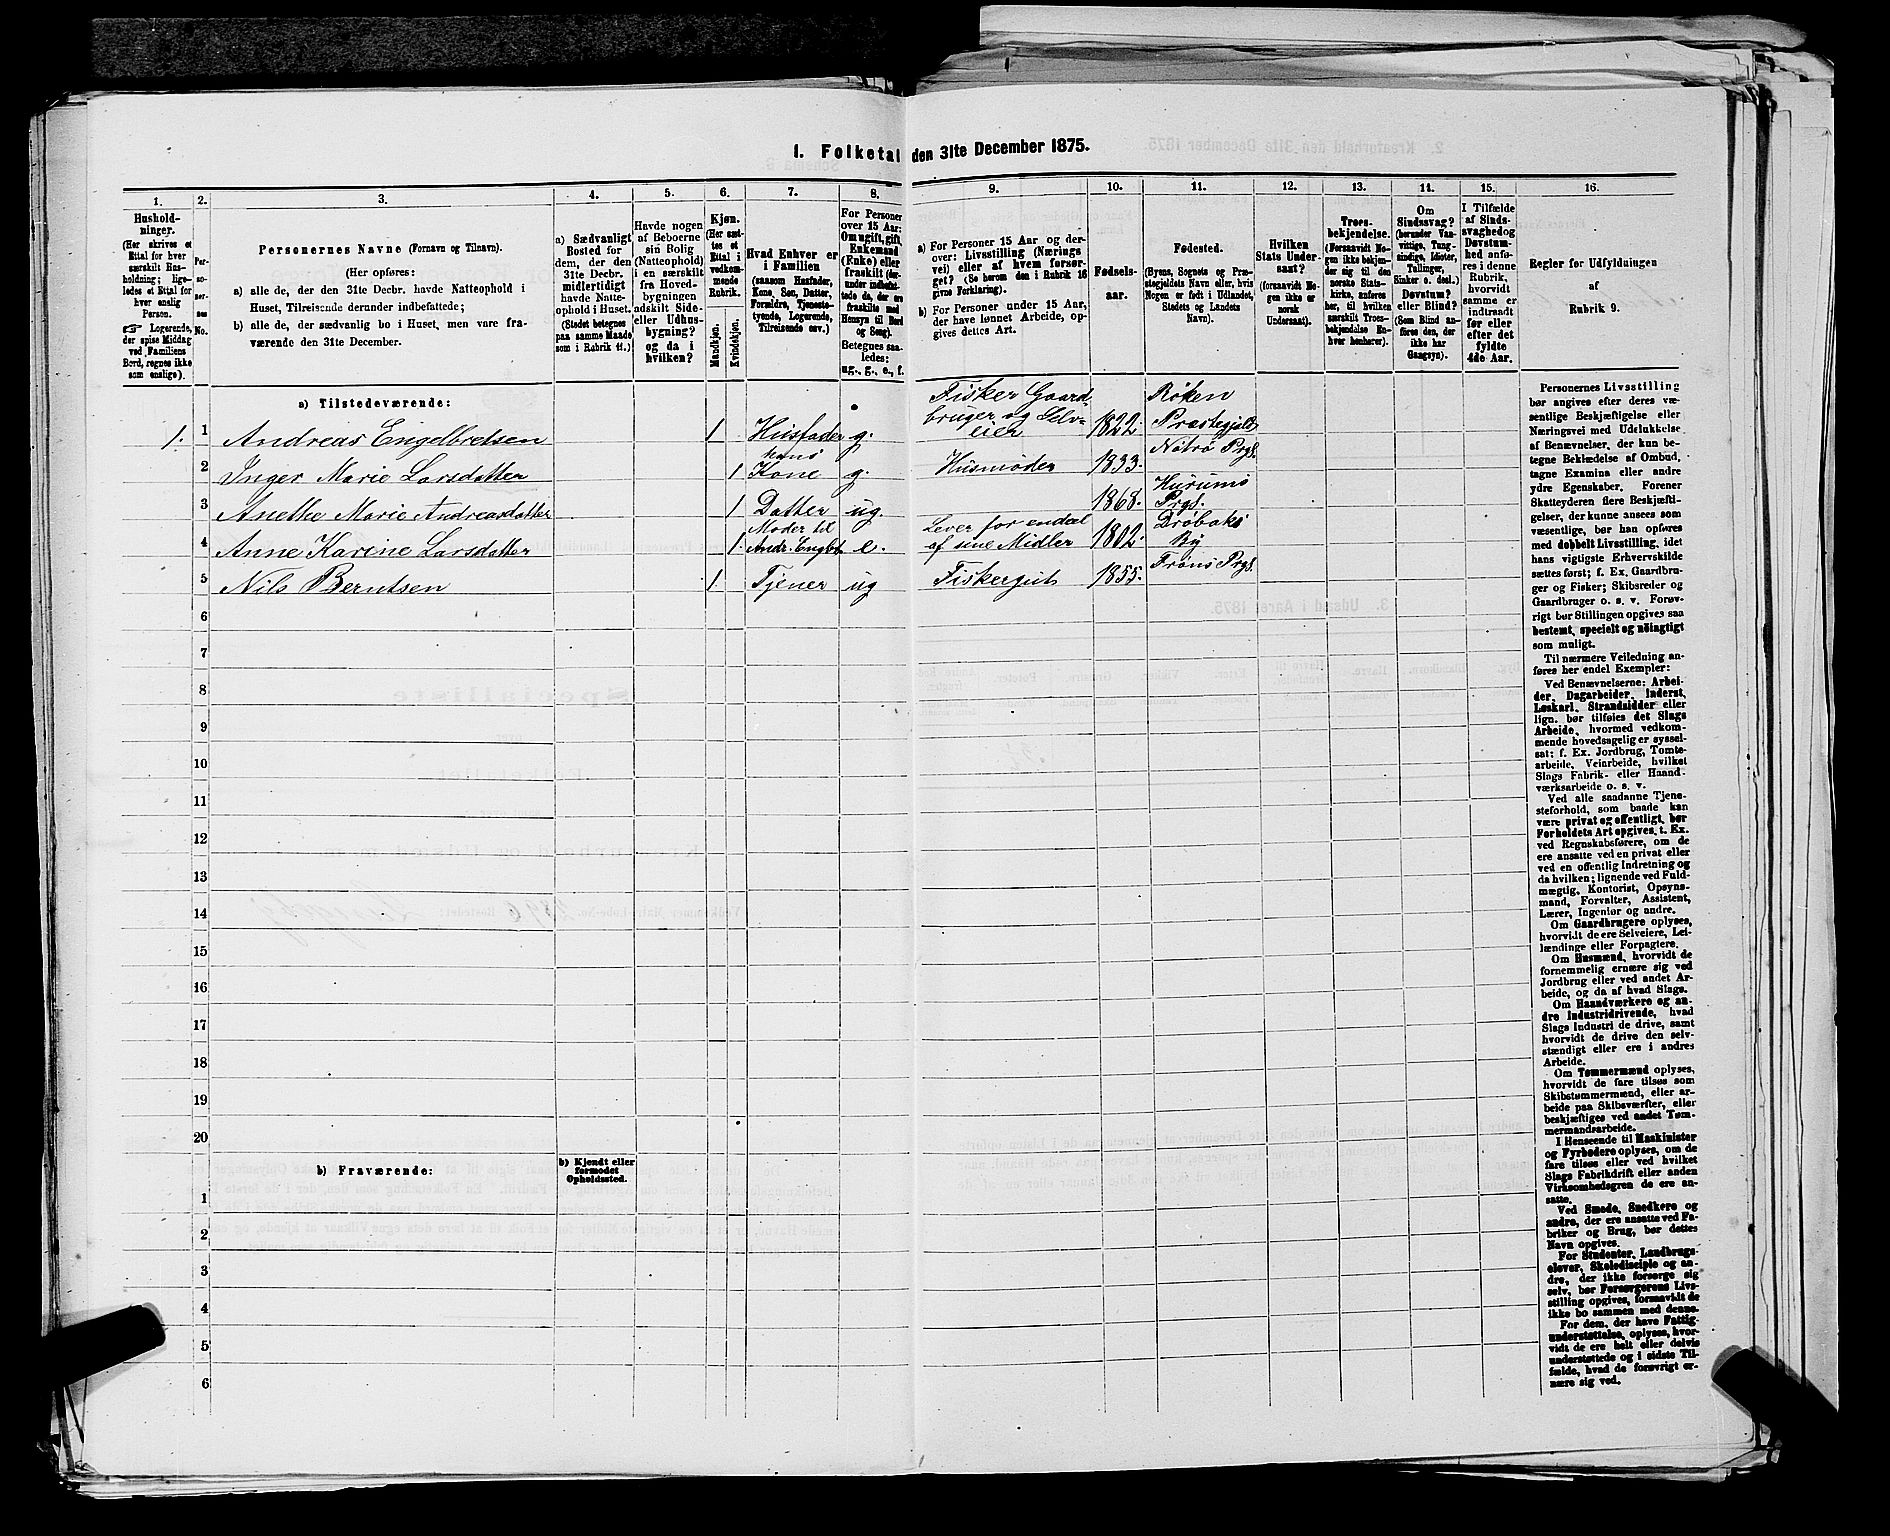 1. Folketal den 31te December 1875.
1. 2. 3. 4. 5. 6. 7. 8. 9. 10. 11. 12. 13. 14. 15. 16.
Hushold-
ninger.
(Her skrives et
Ettal for hver
særskilt Hus-
holdning; lige-
ledes et Ettal for
hver enslig
Person.
☞ Logerende,
der spise Middag
ved Familiens
Bord, regnes ikke
som enslige).
Per-
so-
ner-
nes
No.
Personernes Navne (Fornavn og Tilnavn).
(Her opføres:
a) alle de, der den 31te Decbr. havde Natteophold i
Huset, Tilreisende derunder indbefattede;
b) alle de, der sædvanlig bo i Huset, men vare fra-
værende den 31te December.
a) Sædvanligt
Bosted for
dem, der den
31te Decbr.
midlertidigt
havde Natte-
ophold i Huset.
(Stedet betegnes
paa samme Maade
som i Rubrik 11.)
Havde nogen
af Beboerne
sin Bolig
(Natteophold)
i en særskilt
fra Hoved-
bygningen
adskilt Side-
eller Udhus-
bygning?
og da i
hvilken?
Kjøn.
(Her sæt-
tes et
Ettal i
vedkom-
mende
Rubrik.
Mandkjøn.
Kvindekjøn.
Hvad Enhver er
i Familien
(saasom Husfader,
Kone, Søn, Datter,
Forældre, Tjeneste-
tyende, Logerende,
Tilreisende osv.)
For Personer
over 15 Aar:
Om ugift, gift,
Enkemand
(Enke) eller
fraskilt (der-
under indbefat-
tede da, der ere
fraskilte med
Hensyn til Bord
og Seng).
Betegnes saa-
ledes:
ug., g., e., f.
a) For Personer 15 Aar og der-
over: Livsstilling (Nærings
vei) eller af hvem forsør-
get? (Se herom den i Rubrik 16
givne Forklaring).
b) For Personer under 15 Aar,
der have lønnet Arbeide, op-
gives dettes Art.
Fødsels-
aar.
Fødested.
(Byens, Sognets og Præ-
stegjældets Navn eller, hvis
Nogen er født i Udlandet,
Stedets og Landets
Navn).
Hvilken
Stats Under-
saat?
(forsaavidt No-
gen ikke er
norsk
Undersaat).
Troes-
bekjendelse.
(Forsaavidt No-
gen ikke bekjen-
der sig til den
norske Stats-
kirke, anføres
her, til hvilken
særskilt Troes-
bekjendelse En-
hver henhører).
Om
Sindssvag?
(herunder Van-
vittige, Tung-
sindige, Idioter,
Tullinger,
Sinker o. desl.)
Døvstum?
eller Blind?
(Som Blind an-
føres den, der
ikke har
Gangsyn).
I Tilfælde
af Sinds-
svaghed og
Døvstum-
hed anfø-
res i denne
Rubrik,
hvorvidt
samme er
indtraadt
før eller
efter det
fyldte
4de Aar.
Regler for Udfyldningen
af
Rubrik 9.
a) Tilstedeværende:
1. 1 Andreas Engelbretsen 1 Husfader g. Fisker Gaard-bruger og Selv-eier 1822. Røken Præstegjeld
2 Inger Marie Larsdatter 1 hans Kone g. Husmoder 1833. Prgs.
3 Anethe Marie Andreasdatter 1 Datter ug. 1868. Hurums Prgs.
4 Anne Karine Larsdatter 1. Moder til Andr. Englbt e. Lever for endeel af sine Midler 1802. Drøbaks By
5 Nils Berntsen 1 Tjener ug Fiskergut 1855. Frøns Prgs.
6
7
8
9
10
11
12
13
14
15
16
17
18
19
20
b) Fraværende:
b) Kjendt eller
formodet
Opholdssted.
1
2
3
4
5
6
Personernes Livsstilling
bør angives efter deres væ-
sentlige Beskjæftigelse eller
Næringsvei med Udelukkelse
af Benævnelser, der kun be-
tegne Beklædelse af Ombud,
tagne Examina eller andre
ydre Egenskaber. Forener
Skatteyderen flere Beskjæfti-
gelser, der kunne ansees som
væsentlige, bør han opføres
med dobbelt Livsstilling, idet
hans vigtigste Erhvervskilde
sættes først; f. Ex. Gaardbru-
ger og Fisker; Skibsreder og
Gaardbruger o. s. v. Forøv-
rigt bør Stillingen opgives saa
bestemt, specielt og nøiagtigt
som muligt.
Til nærmere Veiledning an-
føres her endel Exempler:
Ved Benævnelserne: Arbei-
der, Dagarbeider, Inderst,
Løskarl, Strandsidder eller
lign. bør tilføies det Slags
Arbeide, hvormed vedkom-
mende hovedsagelig er syssel-
sat; f. Ex. Jordbrug, Tomte-
arbeide, Veiarbeide, hvilket
Slags Fabrik- eller Haand-
værksarbeide o. s. v.
Ved alle saadanne Tjene-
steforhold, som baade kan
være privat og offentligt, bør
Forholdets Art opgives, t. Ex.
ved Regnskabsførere, om de
ere ansatte ved en privat eller
ved en offentlig Indretning og
da hvilken; lignende ved Fuld-
mægtig, Kontorist, Opsyns-
mand, Forvalter, Assistent,
Lærer, Ingeniør og andre.
Om Gaardbrugere oplyses,
hvorvidt de ere Selveiere, Lei-
lændinge eller Forpagtere.
Om Husmænd, hvorvidt de
fornemmelig ernære sig ved
Jordbrug eller ved andet Ar-
beide, og da af hvad Slags.
Om Haandværkere og an-
dre Industridrivende, hvad
Slags Industri de drive, samt
hvorvidt de drive den selv-
stændigt eller ere i andres
Arbeide.
Om Tømmermænd oplyses,
hvorvidt de fare tilsøs som
Skibstømmermænd, eller ar-
beide paa Skibsværfter, eller
beskjæftiges ved andet Tøm-
mermandsarbeide.
I Henseende til Maskinister
og Fyrbødere oplyses, om de
fare tilsøs eller ved hvilket
Slags Fabrikdrift eller anden
Virksomhedsgren de ere an-
satte.
Ved Smede, Snedkere og
andre, der ere ansatte ved Fa-
briker og Brug, bør dettes
Navn opgives.
For Studenter, Landbrugs-
elever, Skoledisciple og an-
dre, der ikke forsørge sig
selv, bør Forsørgerens Livs-
stilling opgives, forsaavidt de
ikke bo sammen med denne.
For dem, der have Fattig-
understøttelse, oplyses, hvor-
vidt de ere helt eller delvis
understøttede og i sidste Til-
fælde, hvad de forøvrigt er-
nære sig ved.